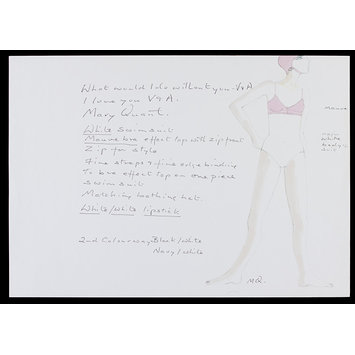 What would I do without you V&A
I love you V&A.
Mary Quant.
White swimsuit
Mauve bra effect top with zip front
Zip for style
Fine straps & fine edge binding
To bra effect top on one piece
swimsuit
Matching bathing hat.
White/white lipstick
2nd Colourway Black/White
Navy/White
Mauve
White
M.Q.